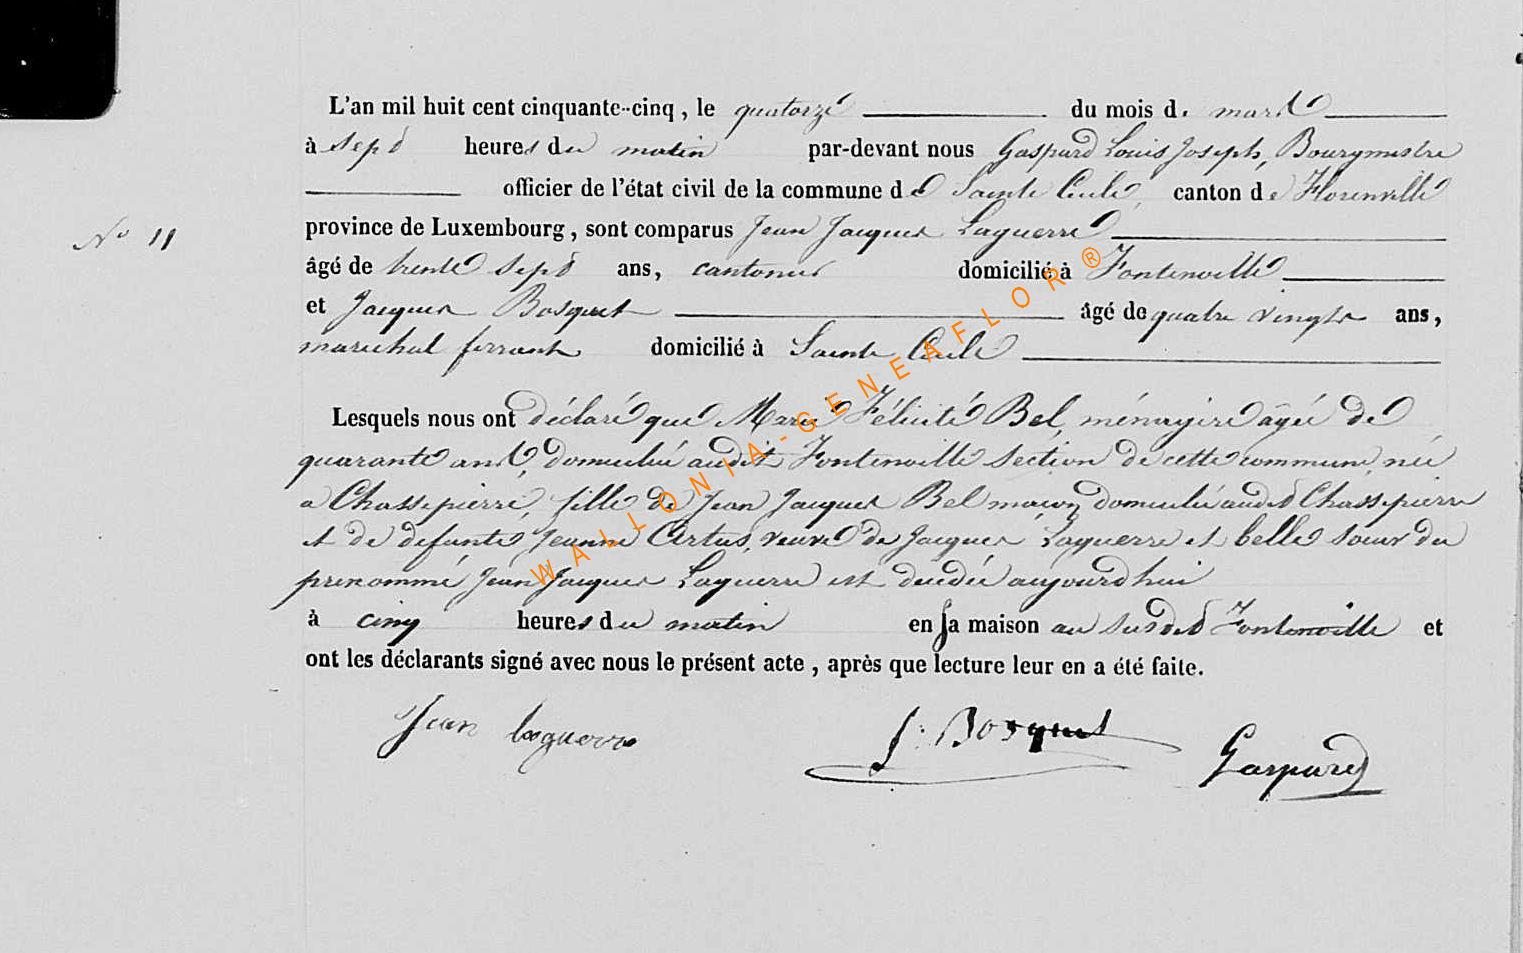 L'an mil huit cent cinquante-cinq, le quatorze du mois de mars
à sept heures du matin par-devant nous Gaspard Louis Joseph, Bourgmestre
officier de l'état civil de la commune de Sainte Cécile, canton de Florenville
N° 11
province de Luxembourg, sont comparus Jean Jacques Laguerre
âgé de trente sept ans, cantonier domicilié à Fontenoille
et Jacques Bosquet âgé de quatre vingts ans,
marechal ferrant domicilié à Sainte Cécile
Lesquels nous ont déclaré que Marie Félicité Bel, ménagère âgée de
quarante ans, domiciliée audit Fontenoille section de cette commune, née
a Chassepierre, fille de Jean Jacques Bel maçon domicilié audit Chassepierre
et de defunte Jeanne Artus, veuve de Jacques Laguerre et belle soeur du
prenommé Jean Jacques Laguerre est décédée aujourd'hui
à cinq heures du matin en sa maison au susdit Fontenoille et
ont les déclarants signé avec nous le présent acte, après que lecture leur en a été faite.
Jean laguerre J. Bosquet Gaspard
WALLONIA-GENEAFLOR®